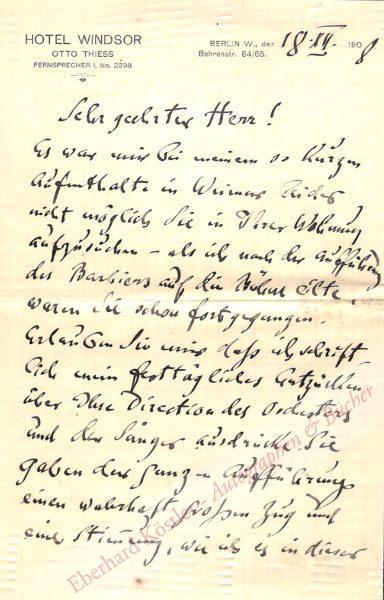 HOTEL WINDSOR
OTTO THIESS
FERNSPRECHER I, No. 2298
BERLIN W., den 18. XII. 1908
Behrenstr. 64/65.
Sehr geehrter Herr!
Es war mir bei meinem so kurzen
Aufenthalte in Weimar leider
nicht möglich Sie in Ihrer Wohnung
aufzusuchen – als ich nach der Aufführung
des Barbiers auf die Bühne eilte,
waren Sie schon fortgegangen.
Erlauben Sie mir daß ich schrift
lich mein Entzücken
über Ihre Direction des Orchesters
und der Sänger ausdrücke. Sie
gaben der ganzen Aufführung
einen wahrhaft großen Zug und
eine Stimmung, wie ich es in dieser
Eberhard Köstler Autographen & Bücher